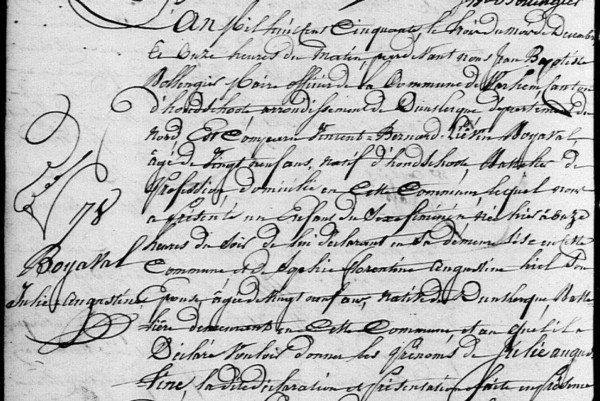 L'an Mil huit cent Cinquante, le treize du mois de Decembre
à Onze heures du Matin, pardevant nous Jean Baptiste
Bollengier Maire officier de la Commune de Warhem, Canton
d'hondschoote arrondissement de Dunkerque département du
Nord, Est Comparu Vincent-Bernard-Liévin Boyaval,
âgé de Vingt neuf ans, natif d'hondschoote Batelier de
profession domicilié en Cette Commune, lequel nous
a présenté un Enfant du Sexe féminin née hier à onze
heures du Soir de lui déclarant en Sa demeure Sise en cette
Commune et de Sophie florentine augustine Son
Epouse, âgée de Vingt neuf ans, native de Dunkerque Batte-
lière demeurant en Cette Commune et au quel il a
Déclaré Vouloir donner les prénoms de Julie augus-
tine, la dite déclaration et présentation faite en présence
78
Boyaval
Julie-augustine